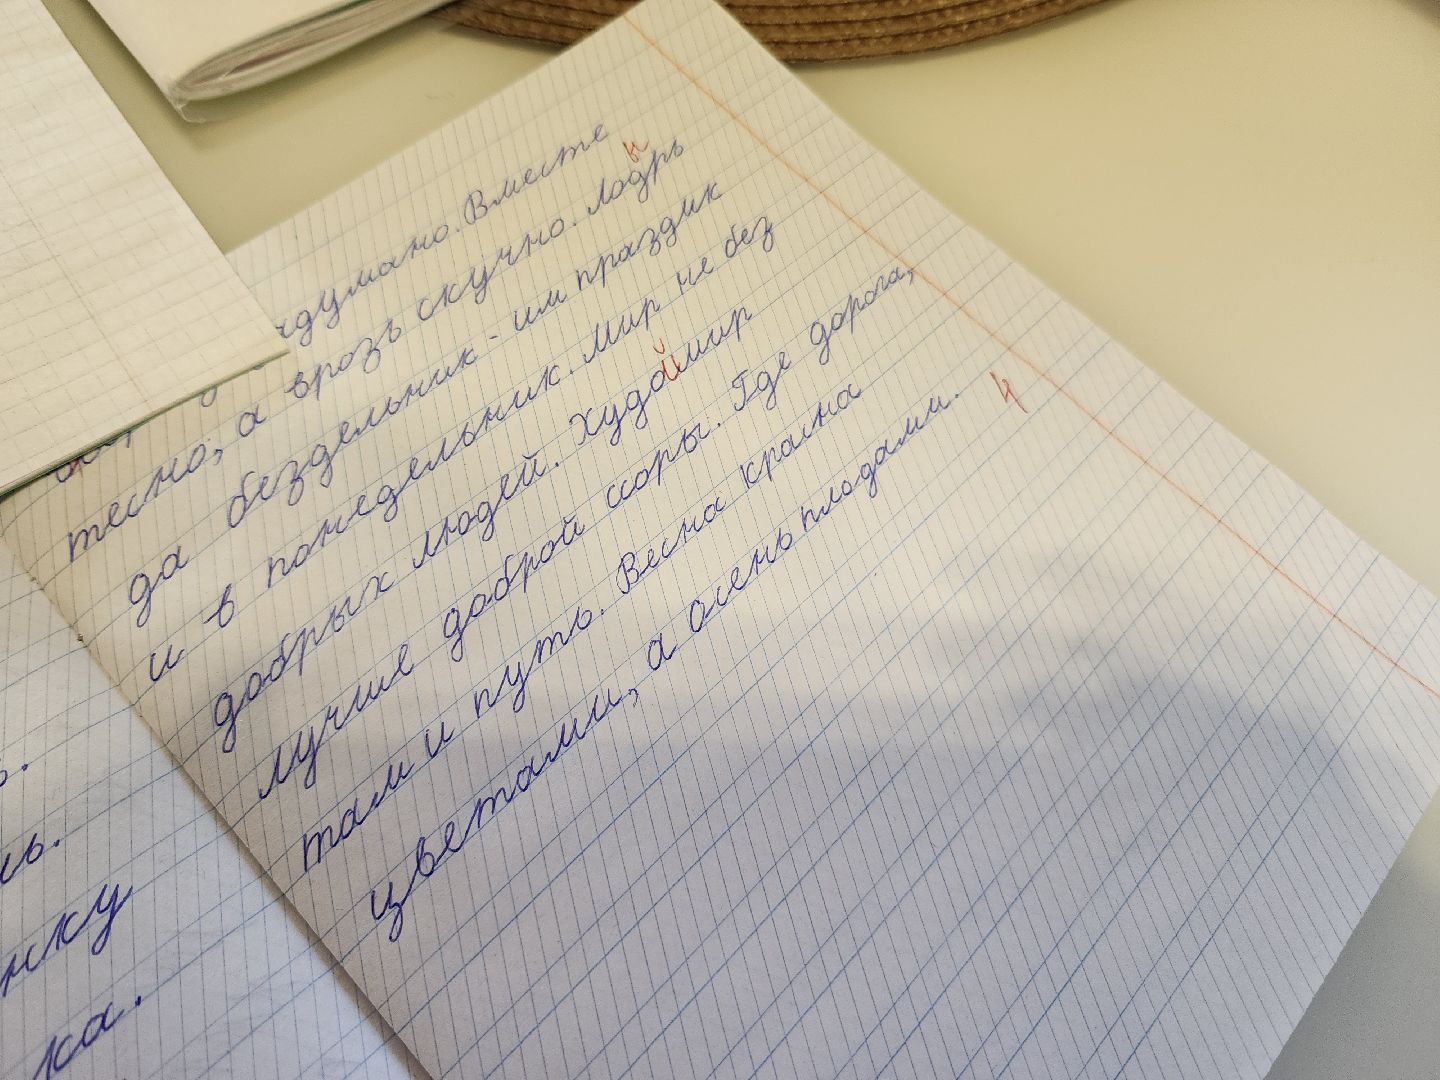 думано. Вместе
тесно, а врозь скучно. Лодрь
н
да бездельник - им праздик
и в понедельник. Мир не без
добрых людей. Худой мир
лучше доброй ссоры. Где дорога,
там и путь. Весна красна
цветами, а осень плодами.
4
ь.
нь.
нку
ка.